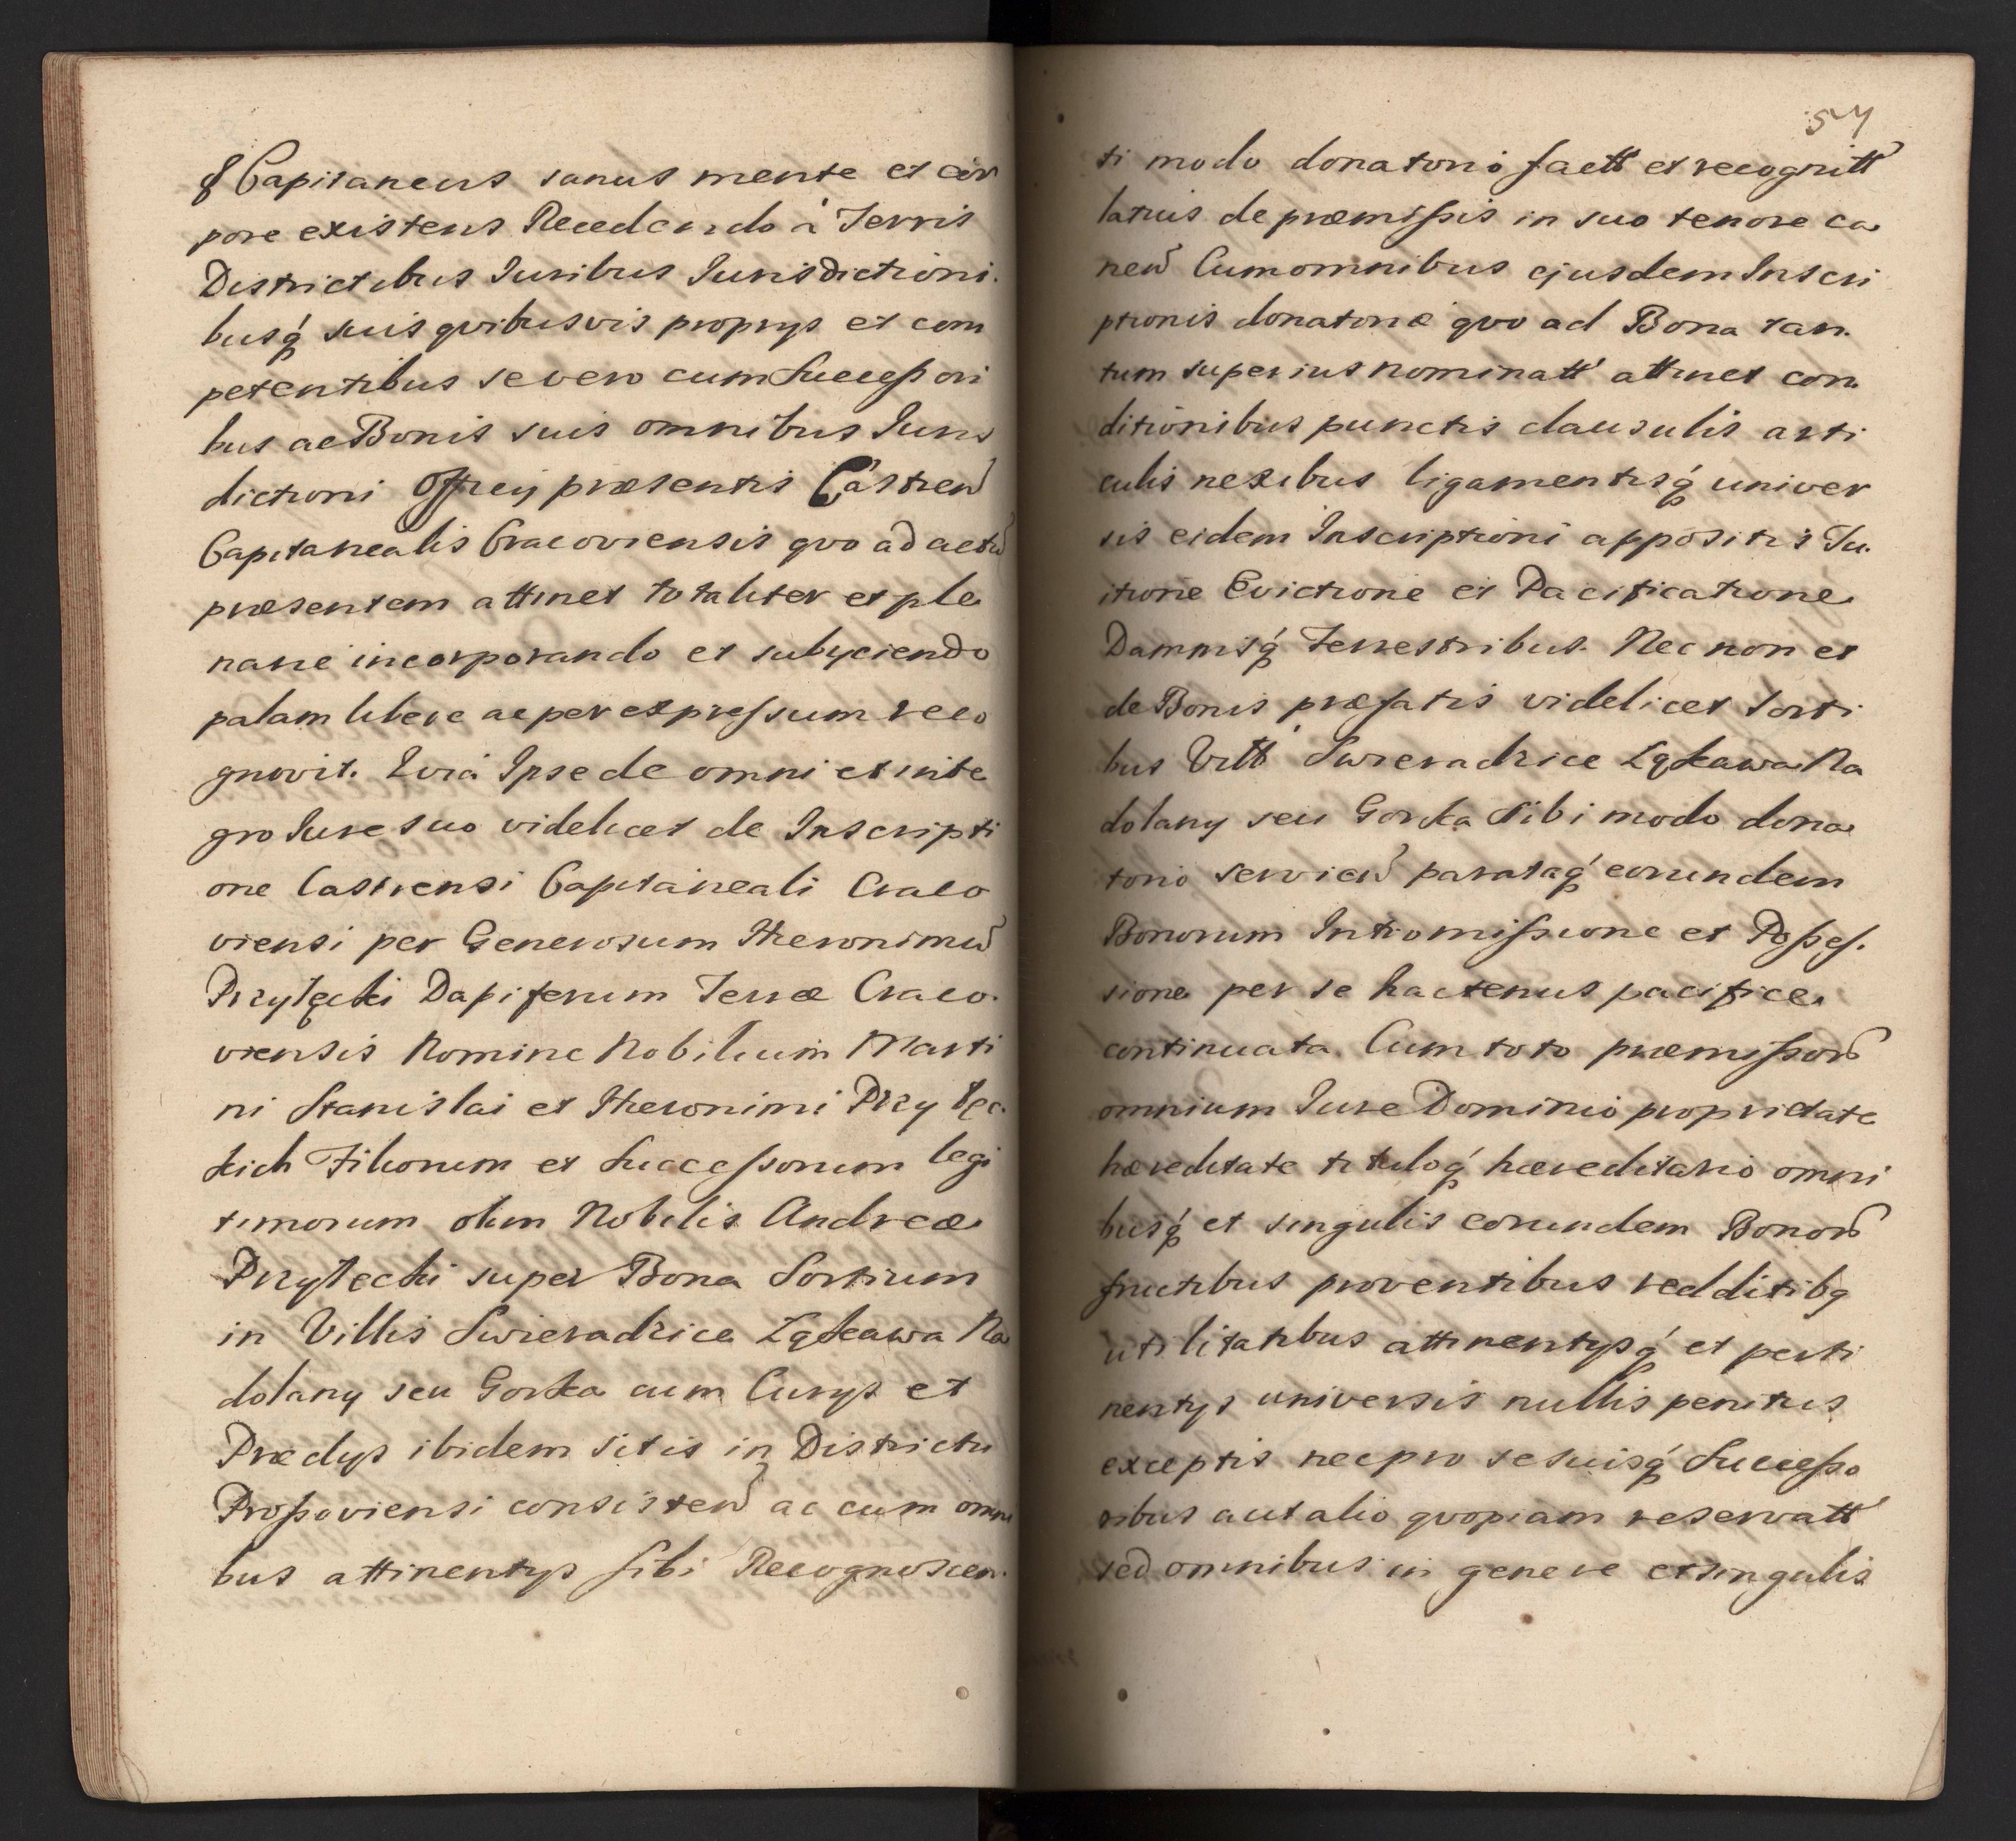 & Capitaneus sanus mente et cor
pore existens Recedendo à Terris
Districtibus Iuribus Iurisdictioni.
busq́ suis qvibusvis proprys et com
petentibus se vero cum Successori
bus ac Bonis suis omnibus Juris
dictioni Officy præsentis Castreñ
Capitanealis Cracoviensis qvo ad actũ
præsentem attinet totaliter et ple
narie incorporando et subyciendo
palam libere ac per expressum reco
gnovit. Qvia Ipse de omni et inte
gro Iure suo videlicet de Inscripti
one Castrensi Capitaneali Craco
viensi per Generosum Hieronimũ
Przyłęcki Dapiferum Terræ Craco.
viensis Nomine Nobilium Marti
ni Stanislai et Hieronimi Przyłęc.
kich Filiorum et Successorum legi
timorum olim Nobilis Andreæ
Przyłęcki super Bona Sortium
in Villis Swieradzice Łękawa Na
dolany seu Gorka cum Curys et
Prædys ibidem sitis in Districtu
Proszoviensi consisteñ ac cum omni
bus attinentys sibi Recognoscen.
54
ti modo donatorio factt et recognitt
latius de præmissis in suo tenore ca
neñ Cum omnibus ejusdem Inscri
ptionis donatoriæ qvo ad Bona tan.
tum superius nominatt attinet con
ditionibus punctis clausulis arti
culis nexibus ligamentisq́ univer
sis eidem Inscriptioni appositis Tu.
itione Evictione et Pacificatione
Damnisq́ Terrestribus. Nec non et
de Bonis præfatis videlicet Sorti
bus Vill Swieradzice Łękawa Na
dolany seu Gorka Sibi modo dona
torio servieñ parataq́ eorundem
Bonorum Intromissione et Posses.
sione per se hactenus pacifice
continuata. Cum toto præmissorũ
omnium Iure Dominio proprietate
hæreditate tituloq́ hæreditario omni
busq́ et singulis eorundem Bonorũ
fructibus proventibus redditibq
utilitatibus attinentysq́ et perti
nentys universis nullis penitus
exceptis nec pro se suisq́ Successo
ribus aut alio qvopiam reservatt
sed omnibus in genere et singulis